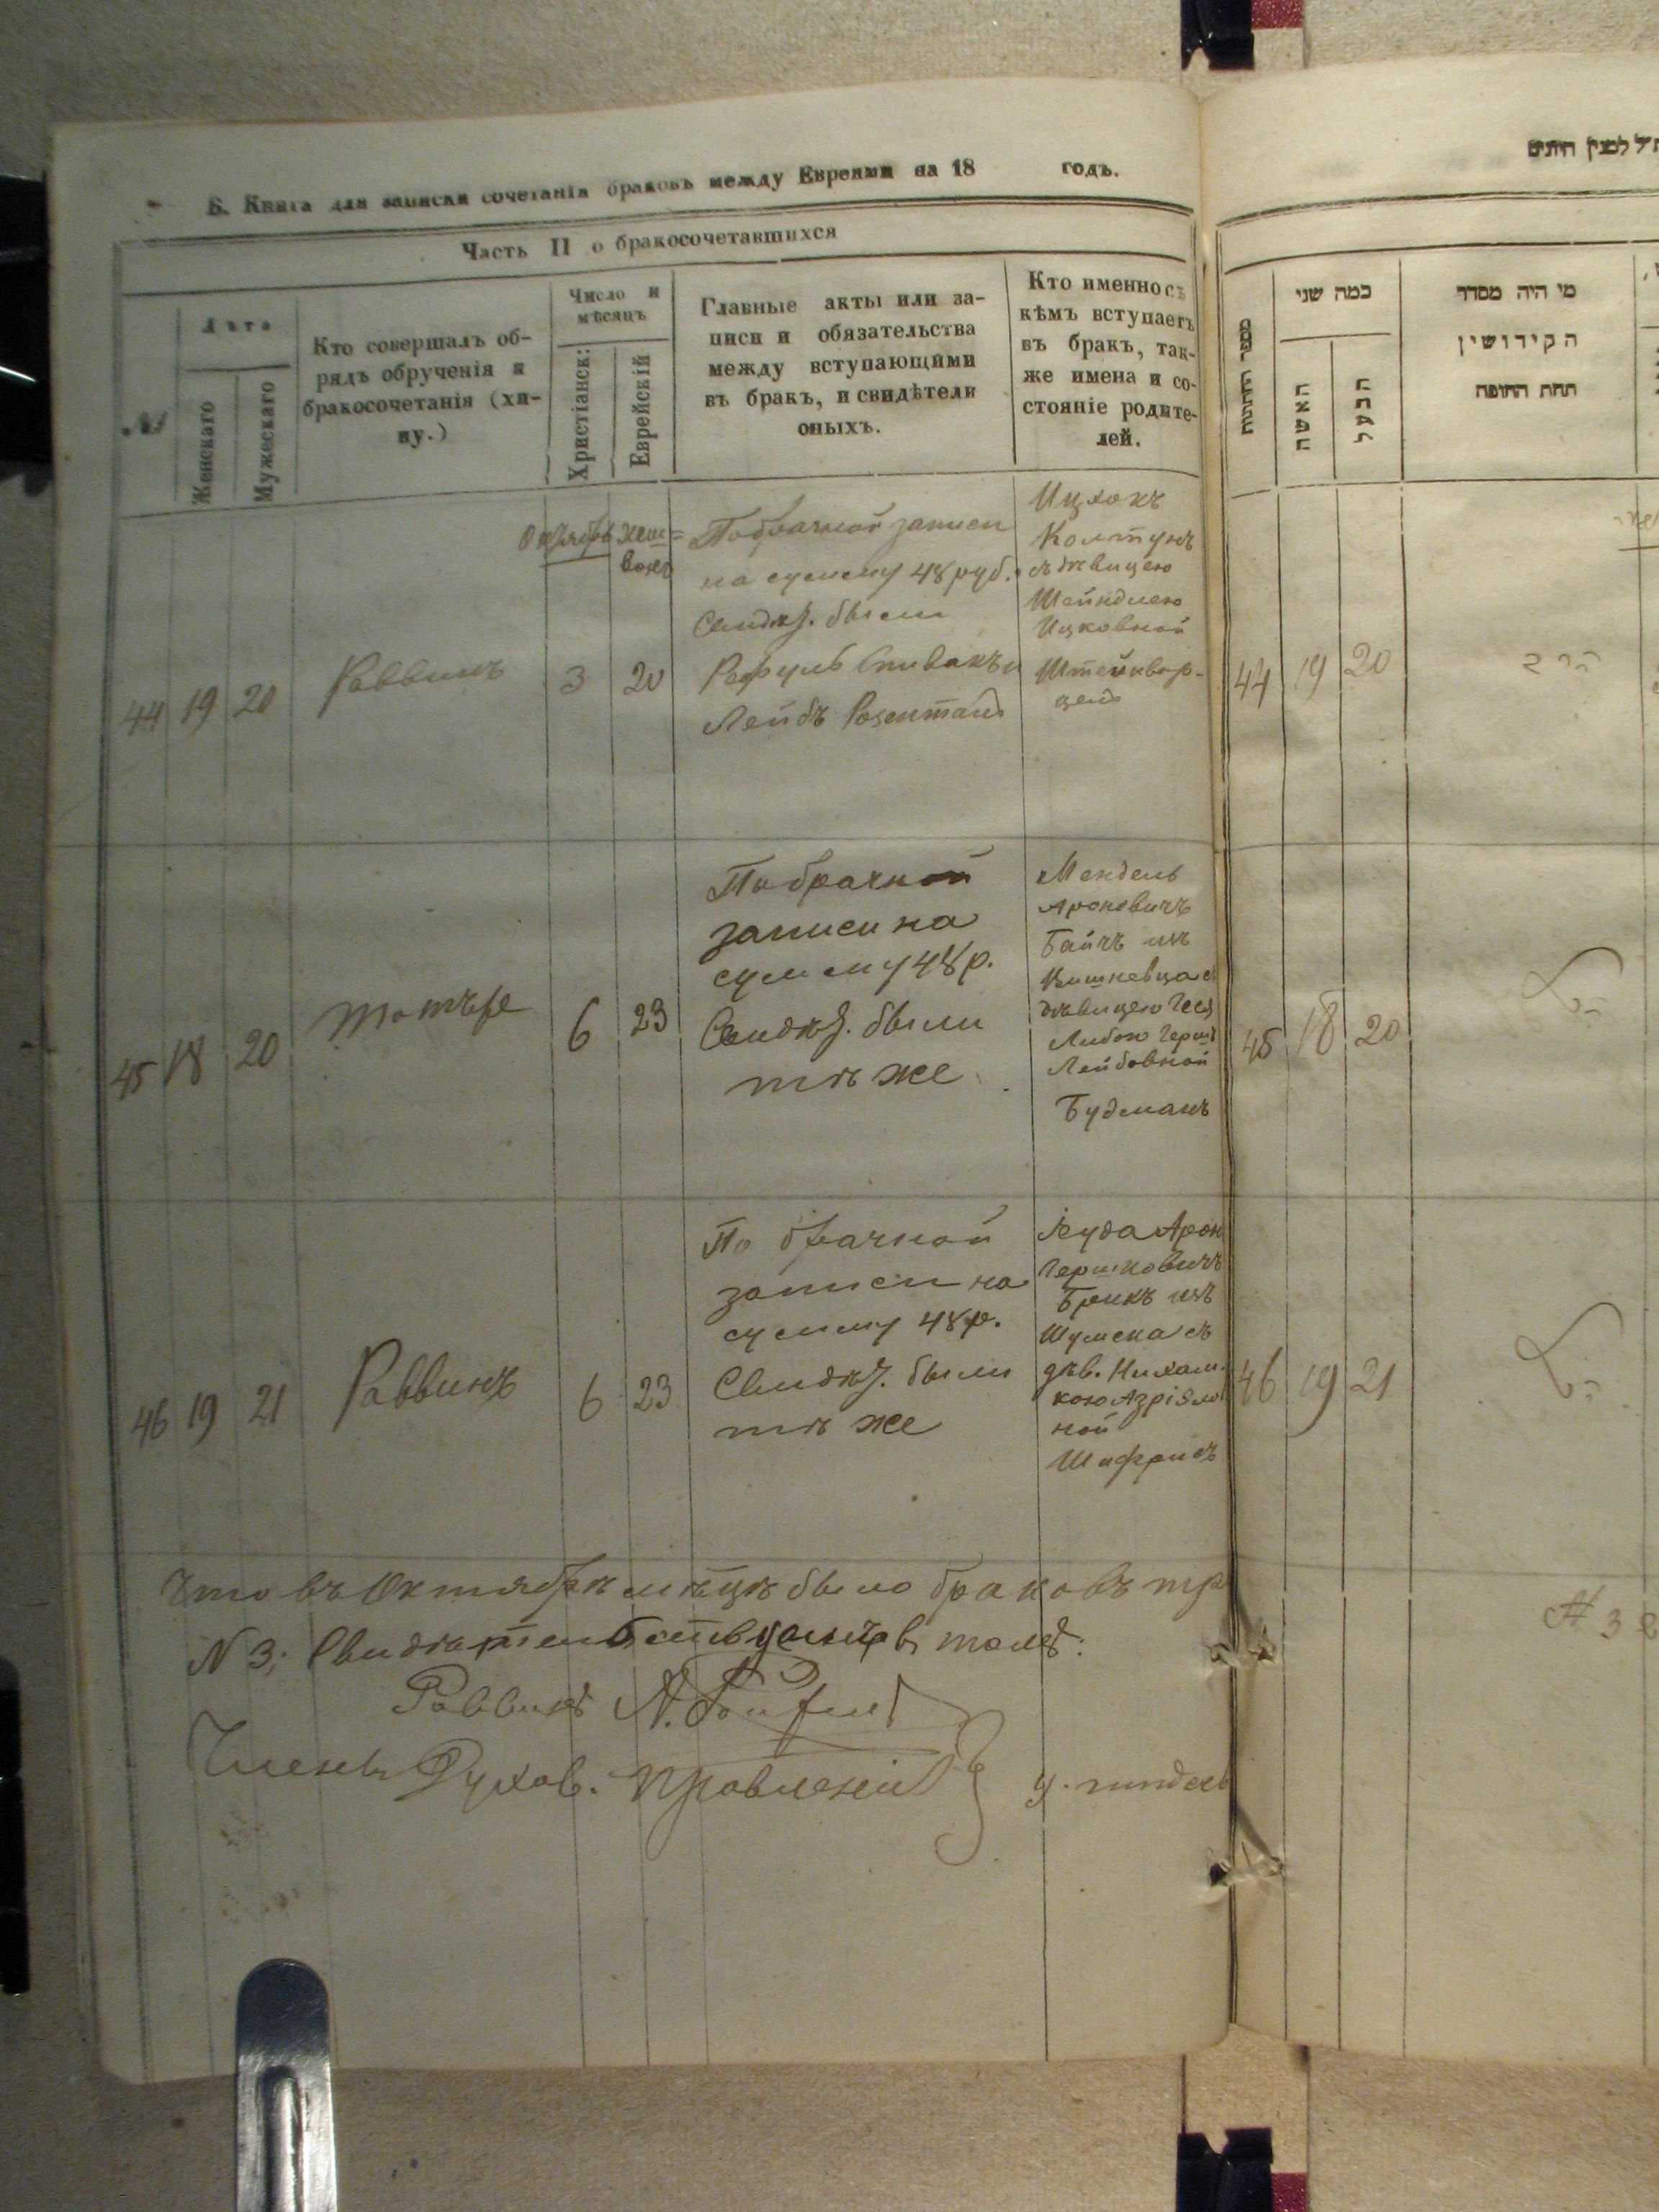 Б. Книга для записки сочетанія браковъ между Евреями на 18 годъ.
Часть II о бракосочетавшихся
№
Лѣта
Женскаго
Мужескаго
Кто совершалъ об-
рядъ обрученія и
бракосочетанія (хи-
пу.)
Число и
мѣсяцъ
Христіанск:
Еврейскій
Главные акты или за-
писи и обязательства
между вступающими
въ бракъ, и свидѣтели
оныхъ.
Кто именно съ
кѣмъ вступаетъ
въ бракъ, так-
же имена и со-
стояніе родите-
лей.
44 19 20
Раввинъ
Октябрь
3
Хеш=
вонъ
20
По брачной записи
на сумму 48 руб.
Свидѣт. были
Рафуль Спивакъ и
Лейбъ
Ицхокъ
Колтунъ
съ дѣвицею
Шейндлею
Ицковной
Штейнвор-
цель
45 18 20
Тотъ же
6 23
По брачной
записи на
сумму 48 р.
Свидѣт. были
тѣ же
Мендель
Ароновичъ
Байчъ изъ
Вишневца съ
дѣвицею
Либою Герш
Лейбовной
Будманъ
46 19 21
Раввинъ
6 23
По брачной
записи на
сумму 48 р.
Свидѣт. были
тѣ же
Іеуда Арон
Гершковичъ
Брикъ изъ
Шумска съ
дѣв. Нихам-
кою Азріелов
ной
Шифрисъ
Что въ Октябрѣ мѣцѣ было браковъ тр
N 3; Свидѣтельствуемъ въ томъ:
Раввинъ
Члены Духов. Правленія
מי היה מסדר
הקידושין
תחת החופה
כמה שני
האשה
הבעל
44 19 20
הרב
45 18 20
הנ״ל
46 19 21
הנ״ל
№ 3